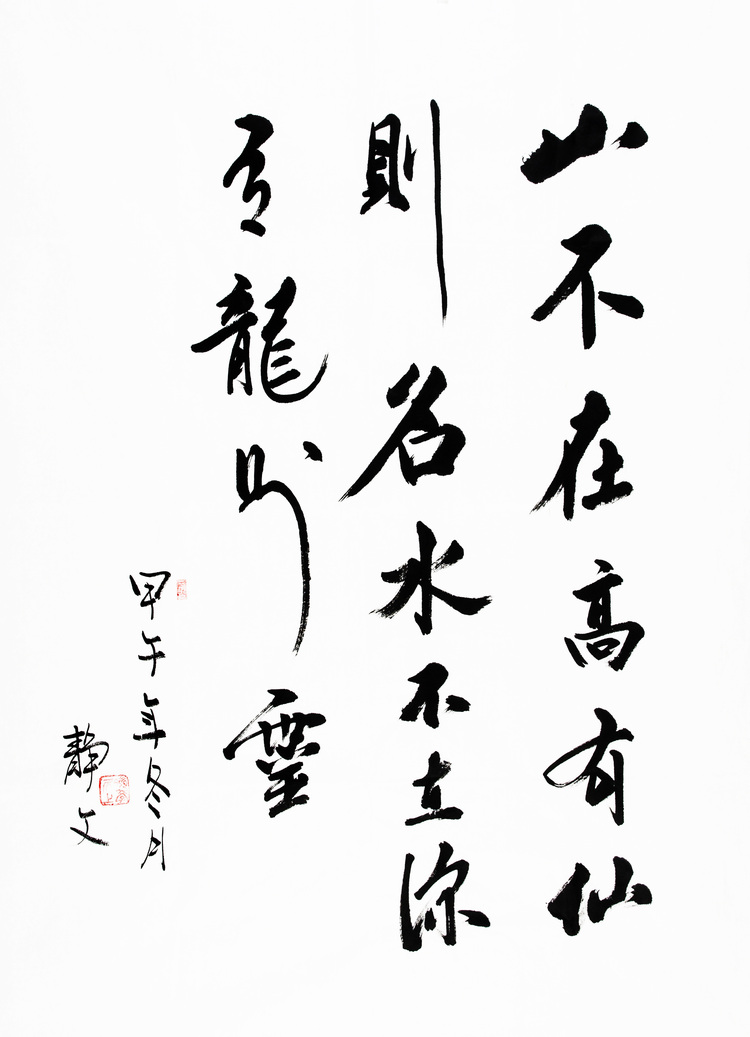 山不在高有仙
則名水不在深
有龍則靈
甲午年冬月
靜文